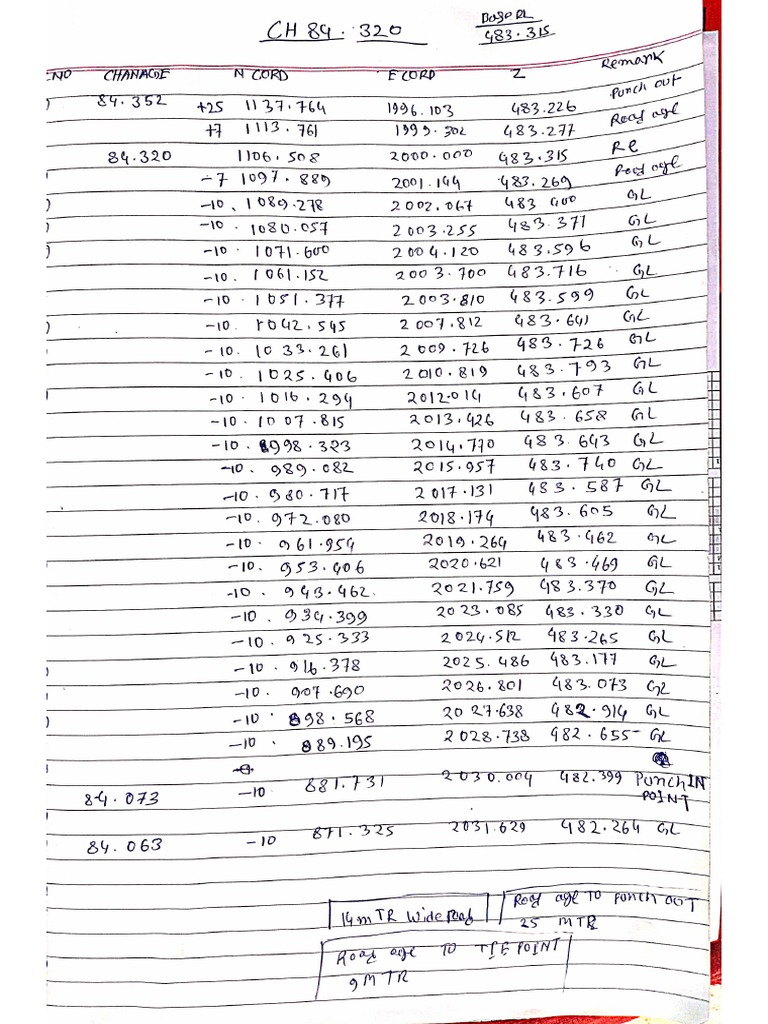 CH 84.320
Base RL
483.315
NO CHANAGE N CORD E CORD Z Remark
84.352 +25 1137.764 1996.103 483.226 Punch out
+7 1113.761 1999.302 483.277 Road age
84.320 1106.508 2000.000 483.315 RC
-7 1097.889 2001.144 483.269 Road age
-10. 1089.278 2002.067 483 400 GL
-10. 1080.057 2003.255 483.371 GL
-10. 1071.600 2004.120 483.596 GL
-10. 1061.152 2003.700 483.716 GL
-10. 1051.377 2003.810 483.599 GL
-10. 1042.545 2007.812 483.641 GL
-10. 1033.261 2009.726 483.726 GL
-10. 1025.406 2010.819 483.793 GL
-10. 1016.294 2012.014 483.607 GL
-10. 1007.815 2013.426 483.658 GL
-10. 998.323 2014.770 483.643 GL
-10. 989.082 2015.957 483.740 GL
-10. 980.717 2017.131 483.587 GL
-10. 972.080 2018.174 483.605 GL
-10. 961.954 2019.264 483.462 GL
-10. 953.406 2020.621 483.469 GL
-10. 943.462. 2021.759 483.370 GL
-10. 934.399 2023.085 483.330 GL
-10. 925.333 2024.512 483.265 GL
-10. 916.378 2025.486 483.177 GL
-10. 907.690 2026.801 483.073 GL
-10. 898.568 2027.638 482.914 GL
-10. 889.195 2028.738 482.655 GL
84.073 -10 881.731 2030.004 482.399 Punch IN
POINT
84.063 -10 871.325 2031.629 482.264 GL
14 mTR Wide Road
Road age TO Punch OUT
25 MTR
Road age TO TIE POINT
9 MTR